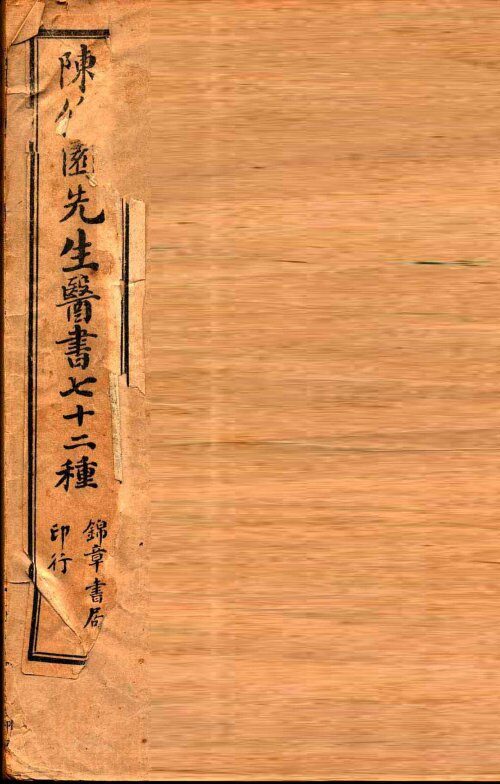 陳 園先生醫書七十二種
錦章書局
印行